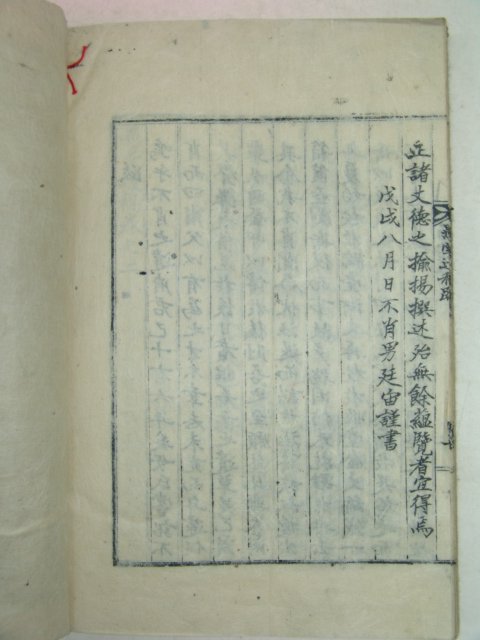 正諸丈德之揄揚撰述殆無餘蘊覽者宜得焉
戊戌八月日不肖男廷宙謹書